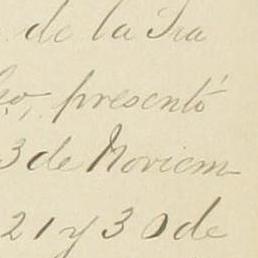 de la Sra
go, presentó
3 de Noviem-
21 y 30 de